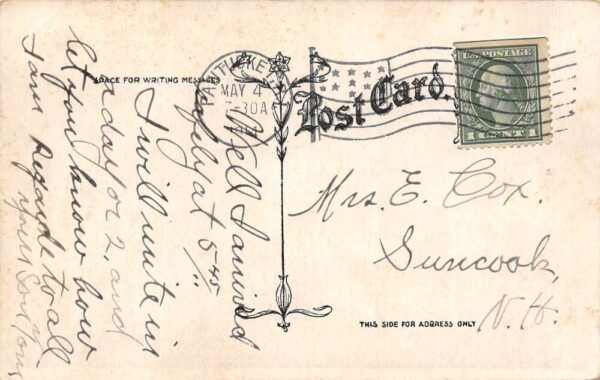 SPACE FOR WRITING MESSAGES
Post Card.
PAWTUCKET
MAY 4
7-30A
U.S. POSTAGE
1 CENT 1
Mrs. E. Cox.
Suncook,
N. H.
THIS SIDE FOR ADDRESS ONLY
Well I arrived
safely at 5 45
I will write in
a day or 2, and
let you know how
I am Regards to all
your Son